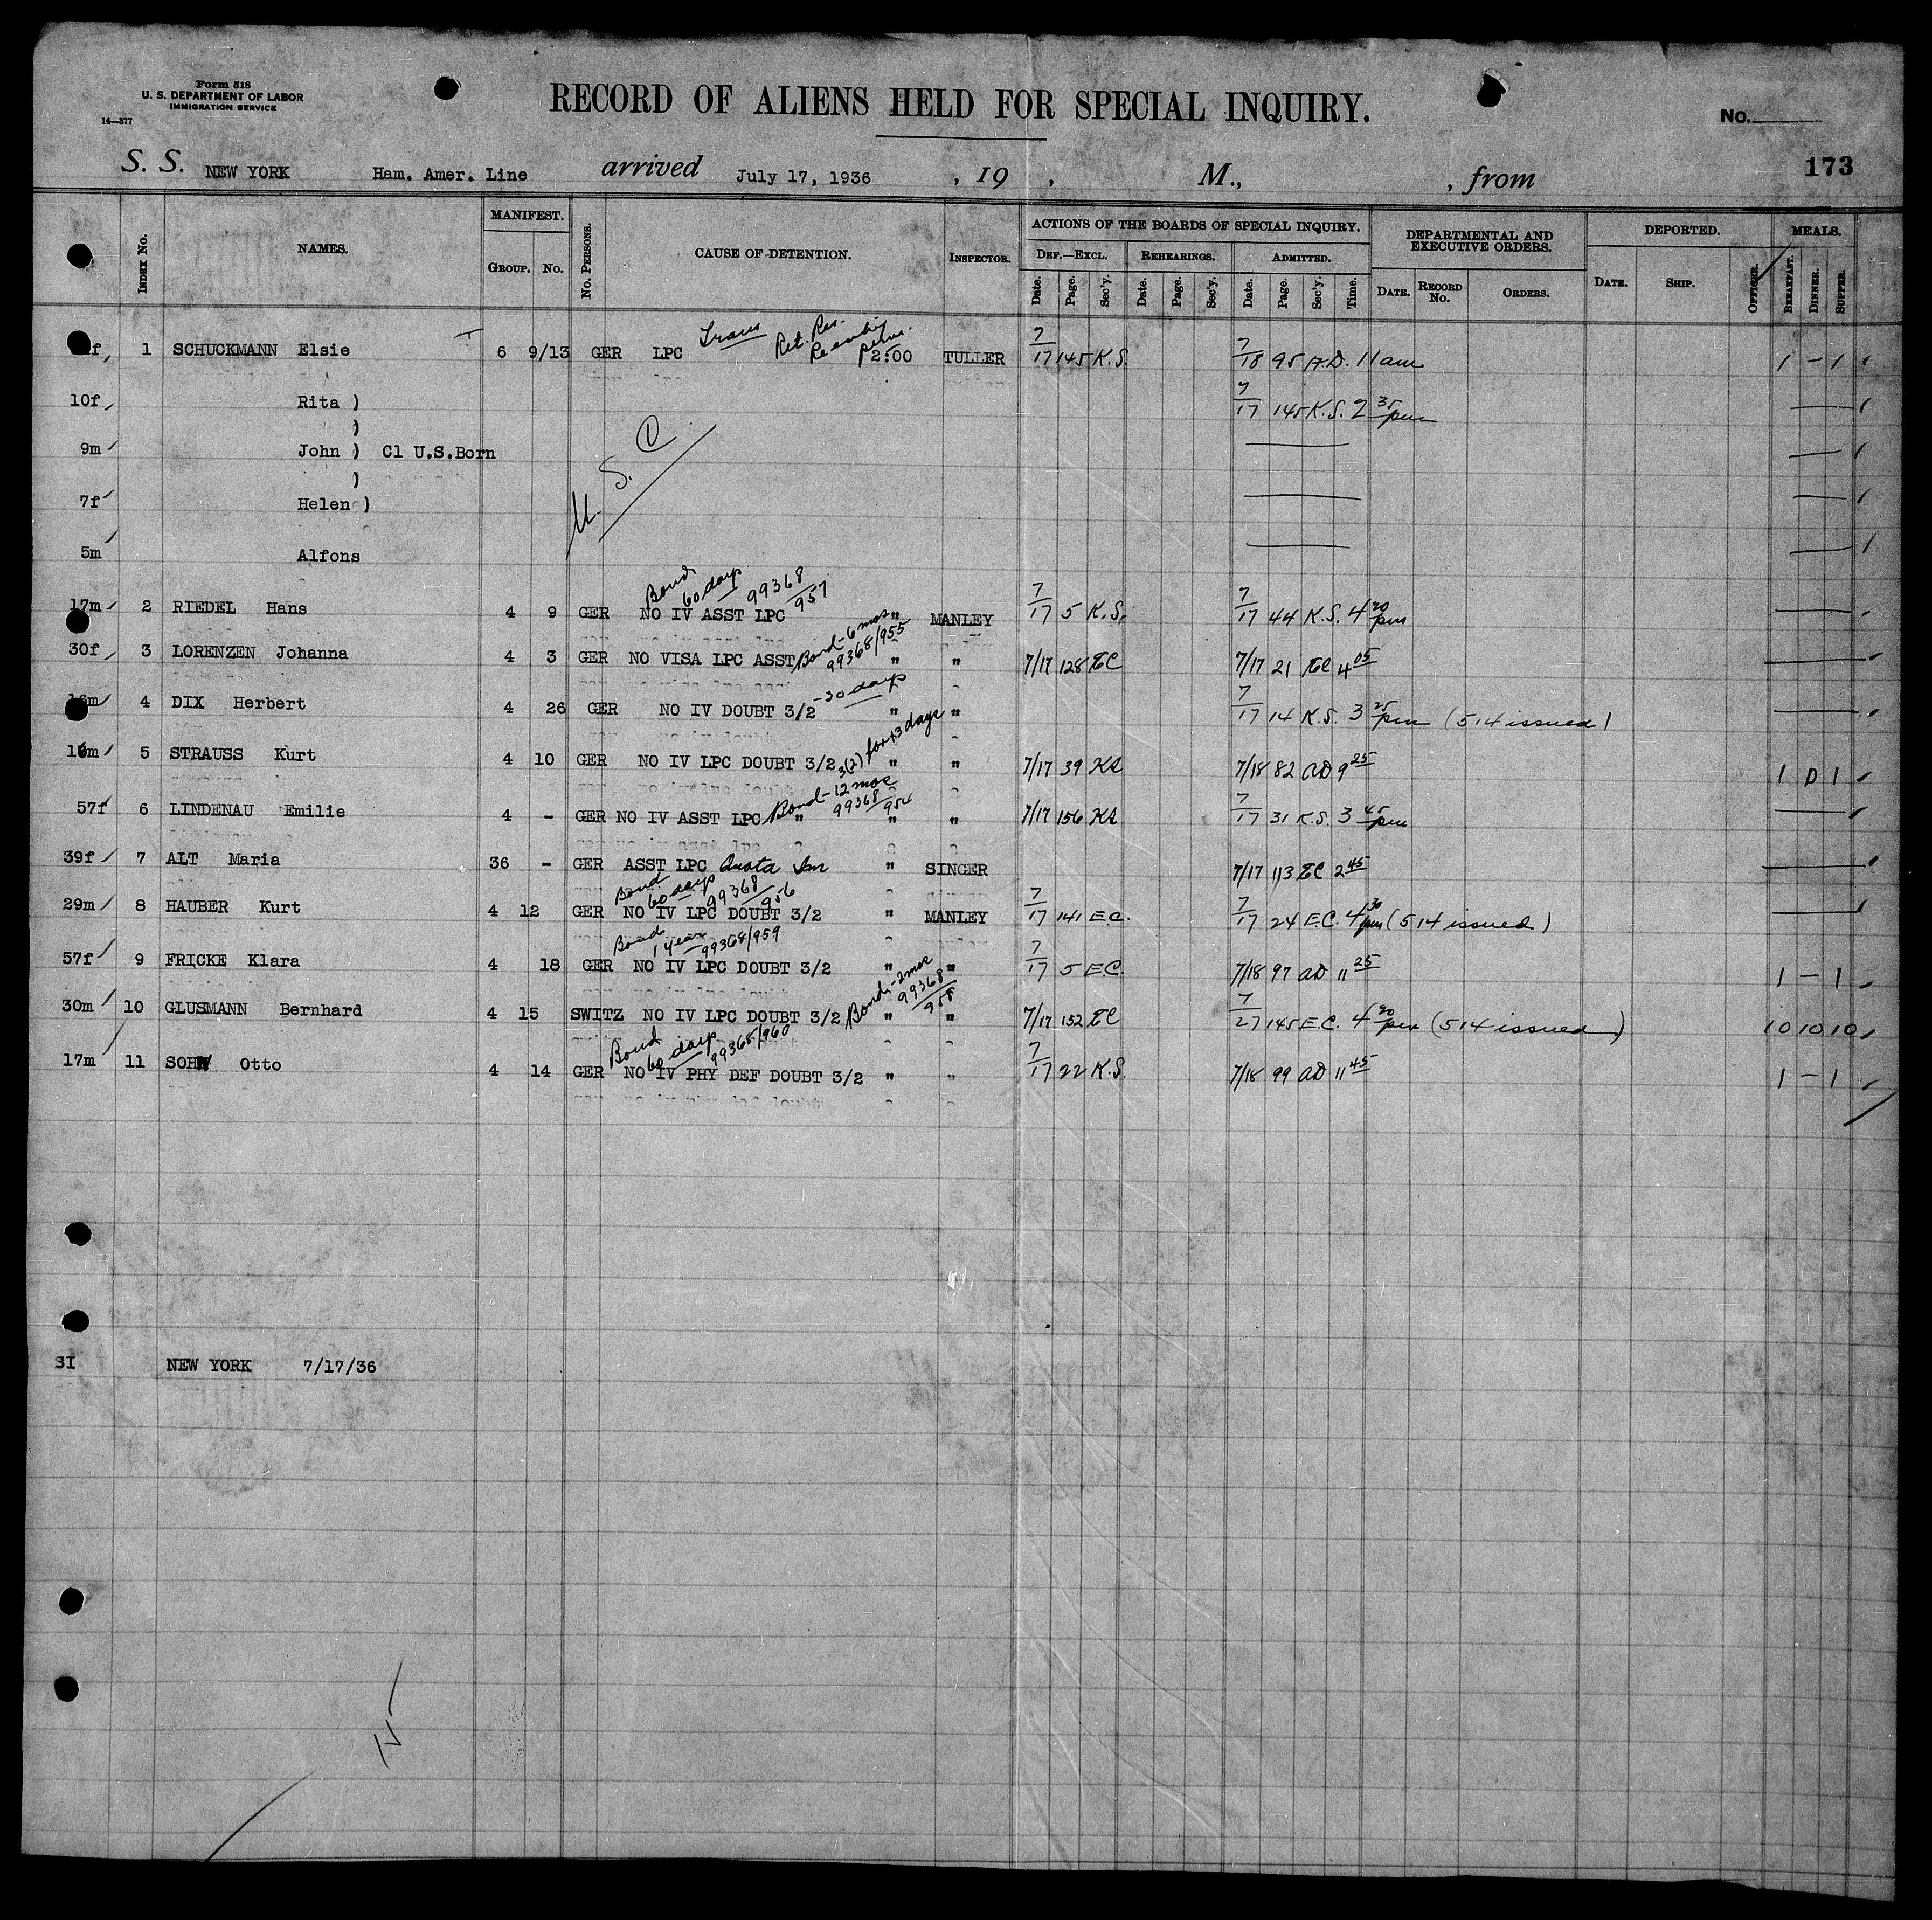 Form 518
U. S. DEPARTMENT OF LABOR
IMMIGRATION SERVICE
14—377
RECORD OF ALIENS HELD FOR SPECIAL INQUIRY.
No.
173
S. S. NEW YORK Ham. Amer. Line arrived July 17, 1936 , 19 , M., , from
INDEX No. NAMES. MANIFEST. GROUP. No. No. PERSONS. CAUSE OF DETENTION. INSPECTOR. ACTIONS OF THE BOARDS OF SPECIAL INQUIRY. DEPARTMENTAL AND EXECUTIVE ORDERS. DEPORTED. MEALS.
DEF.—EXCL. REHEARINGS. ADMITTED.
Date. Page. Sec'y. Date. Page. Sec'y. Date. Page. Sec'y. Time. DATE. RECORD No. ORDERS. DATE. SHIP. OFFICER. BREAKFAST. DINNER. SUPPER.
Trans Ret. Res.
f 1 SCHUCKMANN Elsie 6 9/13 GER LPC 2:00 TULLER 7/17 145 K.S. 7/18 95 A.D. 11 am 1 – 1
10f Rita ) 7/17 145 K.S. 2 35 pm
)
9m John ) Cl U.S.Born
)
U. S. C
7f Helen )
5m Alfons
Bond 60 days 99368/957
17m 2 RIEDEL Hans 4 9 GER NO IV ASST LPC " MANLEY 7/17 5 K.S. 7/17 44 K.S. 4 20 pm
Bond-6 mos 99368/955
30f 3 LORENZEN Johanna 4 3 GER NO VISA LPC ASST " " 7/17 128 EC 7/17 21 EC 4 05
16m 4 DIX Herbert 4 26 GER NO IV DOUBT 3/2 -30 days " " 7/17 14 K.S. 3 25 pm (514 issued)
3(2) for 13 days
16m 5 STRAUSS Kurt 4 10 GER NO IV LPC DOUBT 3/2 " " 7/17 39 KS 7/18 82 AD 9 25 1 D 1
Bond-12 mos 99368/954
57f 6 LINDENAU Emilie 4 - GER NO IV ASST LPC " " " 7/17 156 KS 7/17 31 K.S. 3 45 pm
39f 7 ALT Maria 36 - GER ASST LPC Quota Im " SINGER 7/17 113 EC 2 45
Bond 60 days 99368/956
29m 8 HAUBER Kurt 4 12 GER NO IV LPC DOUBT 3/2 " MANLEY 7/17 141 E.C. 7/17 24 E.C. 4 30 pm (514 issued)
Bond 1 year 99368/959
57f 9 FRICKE Klara 4 18 GER NO IV LPC DOUBT 3/2 " " 7/17 5 E.C. 7/18 97 AD 11 25 1 – 1
Bond-2 mos 99368/958
30m 10 GLUSMANN Bernhard 4 15 SWITZ NO IV LPC DOUBT 3/2 " " 7/17 152 EC 7/27 145 E.C. 4 20 pm (514 issued) 10 10 10
Bond 60 days 99368/960
17m 11 SOHN Otto 4 14 GER NO IV PHY DEF DOUBT 3/2 " " 7/17 22 K.S. 7/18 99 AD 11 45 1 – 1
SI NEW YORK 7/17/36
15